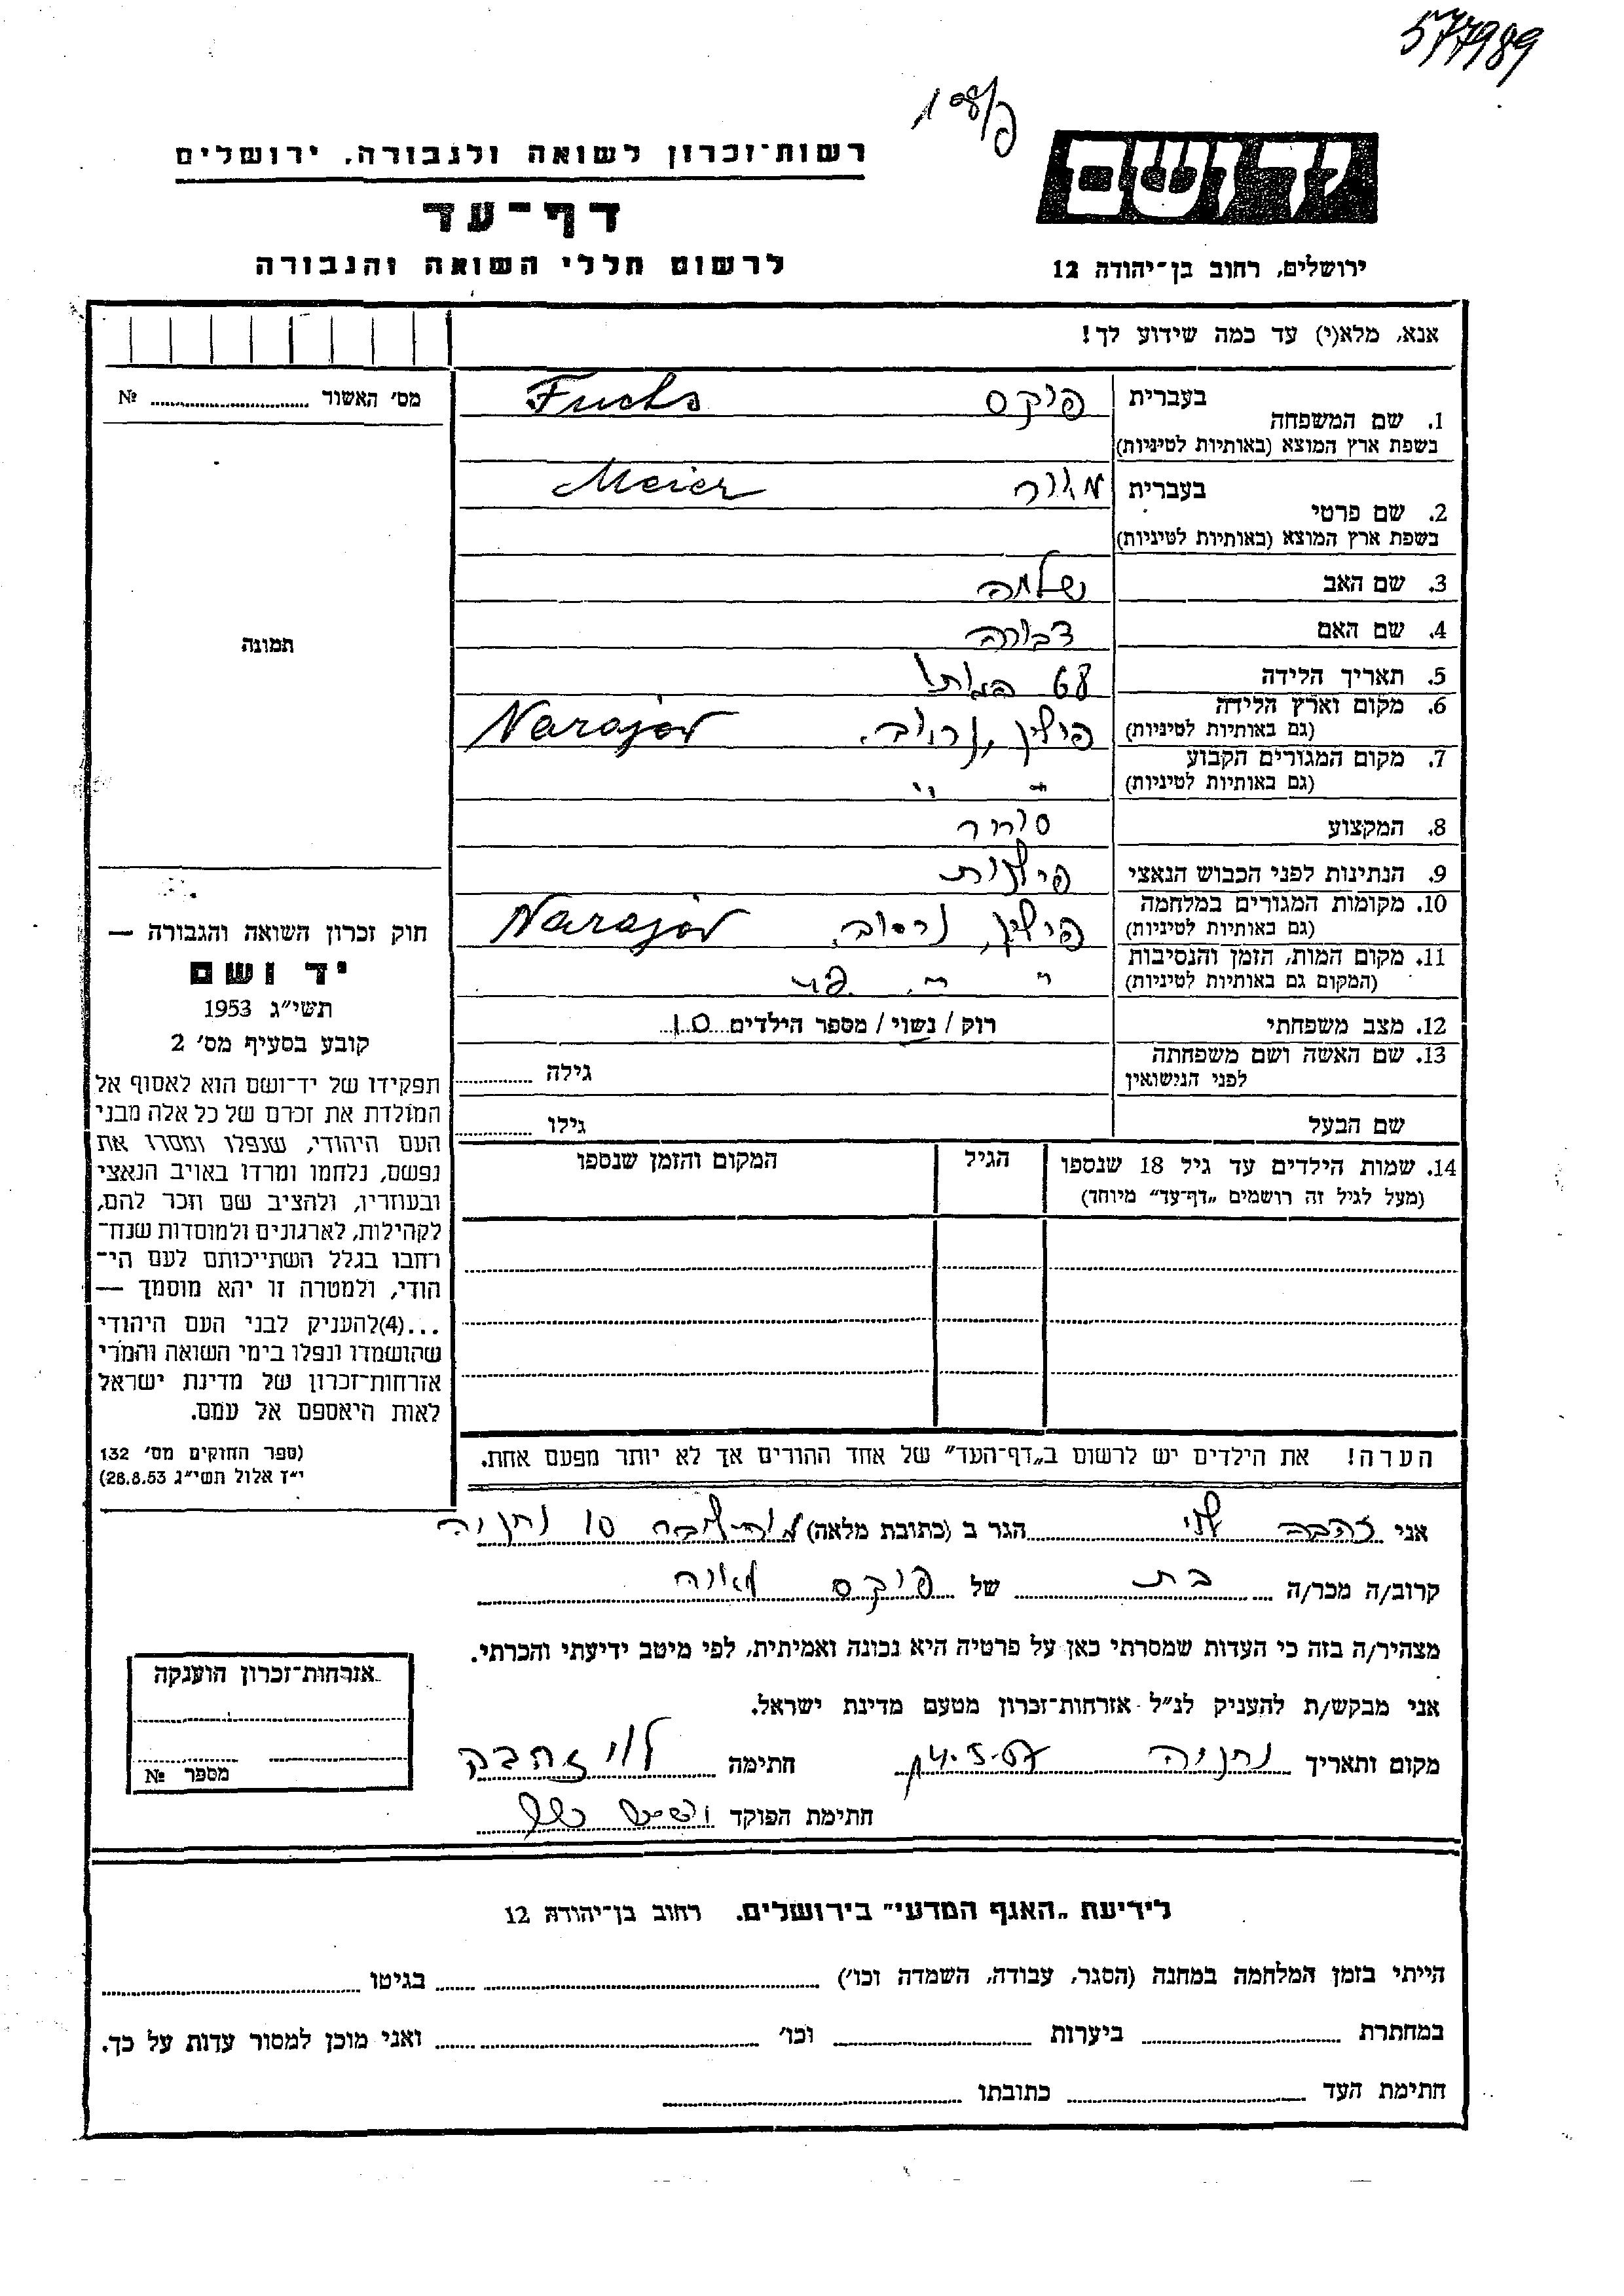 577989
רשות־זכרון לשואה ולגבורה, ירושלים
יד ושם
דף־עד
לרשום חללי השואה והגבורה
ירושלים, רחוב בן־יהודה 12
אנא, מלא(י) עד כמה שידוע לך!
מס' האשור № 
1. שם המשפחה בעברית פוקס Fuchs
בשפת ארץ המוצא (באותיות לטיניות)
2. שם פרטי בעברית מאיר Meier
בשפת ארץ המוצא (באותיות לטיניות)
3. שם האב שלמה
4. שם האם דבורה
תמונה
5. תאריך הלידה
6. מקום וארץ הלידה (גם באותיות לטיניות) פולין, Narajów
7. מקום המגורים הקבוע (גם באותיות לטיניות) " "
8. המקצוע סוחר
9. הנתינות לפני הכבוש הנאצי פולנית
10. מקומות המגורים במלחמה (גם באותיות לטיניות) פולין, Narajów
11. מקום המות, הזמן והנסיבות (המקום גם באותיות לטיניות) " "
12. מצב משפחתי רוק / נשוי / מספר הילדים 10
13. שם האשה ושם משפחתה לפני הנישואין גילה
שם הבעל גילו
14. שמות הילדים עד גיל 18 שנספו הגיל המקום והזמן שנספו
(מעל לגיל זה רושמים „דף־עד" מיוחד)
הערה! את הילדים יש לרשום ב„דף־העד" של אחד ההורים אך לא יותר מפעם אחת.
חוק זכרון השואה והגבורה —
יד ושם
תשי"ג 1953
קובע בסעיף מס' 2
תפקידו של יד־ושם הוא לאסוף אל
המולדת את זכרם של כל אלה מבני
העם היהודי, שנפלו ומסרו את
נפשם, נלחמו ומרדו באויב הנאצי
ובעוזריו, ולהציב שם וזכר להם,
לקהילות, לארגונים ולמוסדות שנח־
רבו בגלל השתייכותם לעם הי־
הודי, ולמטרה זו יהא מוסמך —
...(4)להעניק לבני העם היהודי
שהושמדו ונפלו בימי השואה והמרי
אזרחות־זכרון של מדינת ישראל
לאות היאספם אל עמם.
(ספר החוקים מס' 132
י"ז אלול תשי"ג 28.8.53)
אני זהבה לוי הגר ב (כתובת מלאה) 10 נתניה
קרוב/ה מכר/ה בת של פוקס מאיר
מצהיר/ה בזה כי העדות שמסרתי כאן על פרטיה היא נכונה ואמיתית, לפי מיטב ידיעתי והכרתי.
אני מבקש/ת להעניק לנ"ל אזרחות־זכרון מטעם מדינת ישראל.
מקום ותאריך נתניה חתימה לוי זהבה
חתימת הפוקד
אזרחות־זכרון הוענקה
מספר №
לידיעת „האגף המדעי" בירושלים. רחוב בן־יהודה 12
הייתי בזמן המלחמה במחנה (הסגר, עבודה, השמדה וכו') בגיטו
במחתרת ביערות וכו' ואני מוכן למסור עדות על כך.
חתימת העד כתובתו